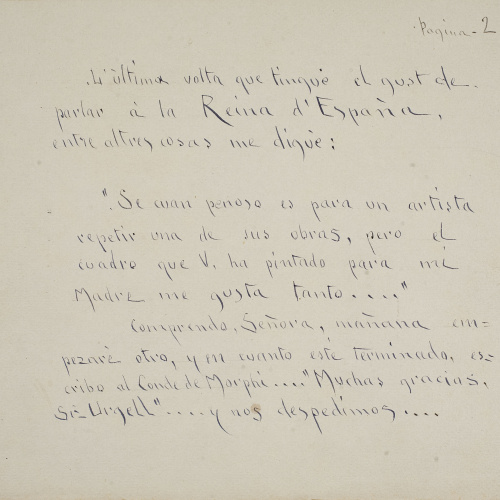 Pagina-2
L'última volta que tingué el gust de
parlar á la Reina d'España,
entre altres cosas me digué:
"Se cuan penoso es para un artista
repetir una de sus obras, pero el
cuadro que V. ha pintado para mi
Madre me gusta tanto...."
Comprendo, Señora, mañana em=
pezaré otro, y en cuanto esté terminado, es=
cribo al Conde de Morphi...."Muchas gracias,
Sr. Urgell"....y nos despedimos....